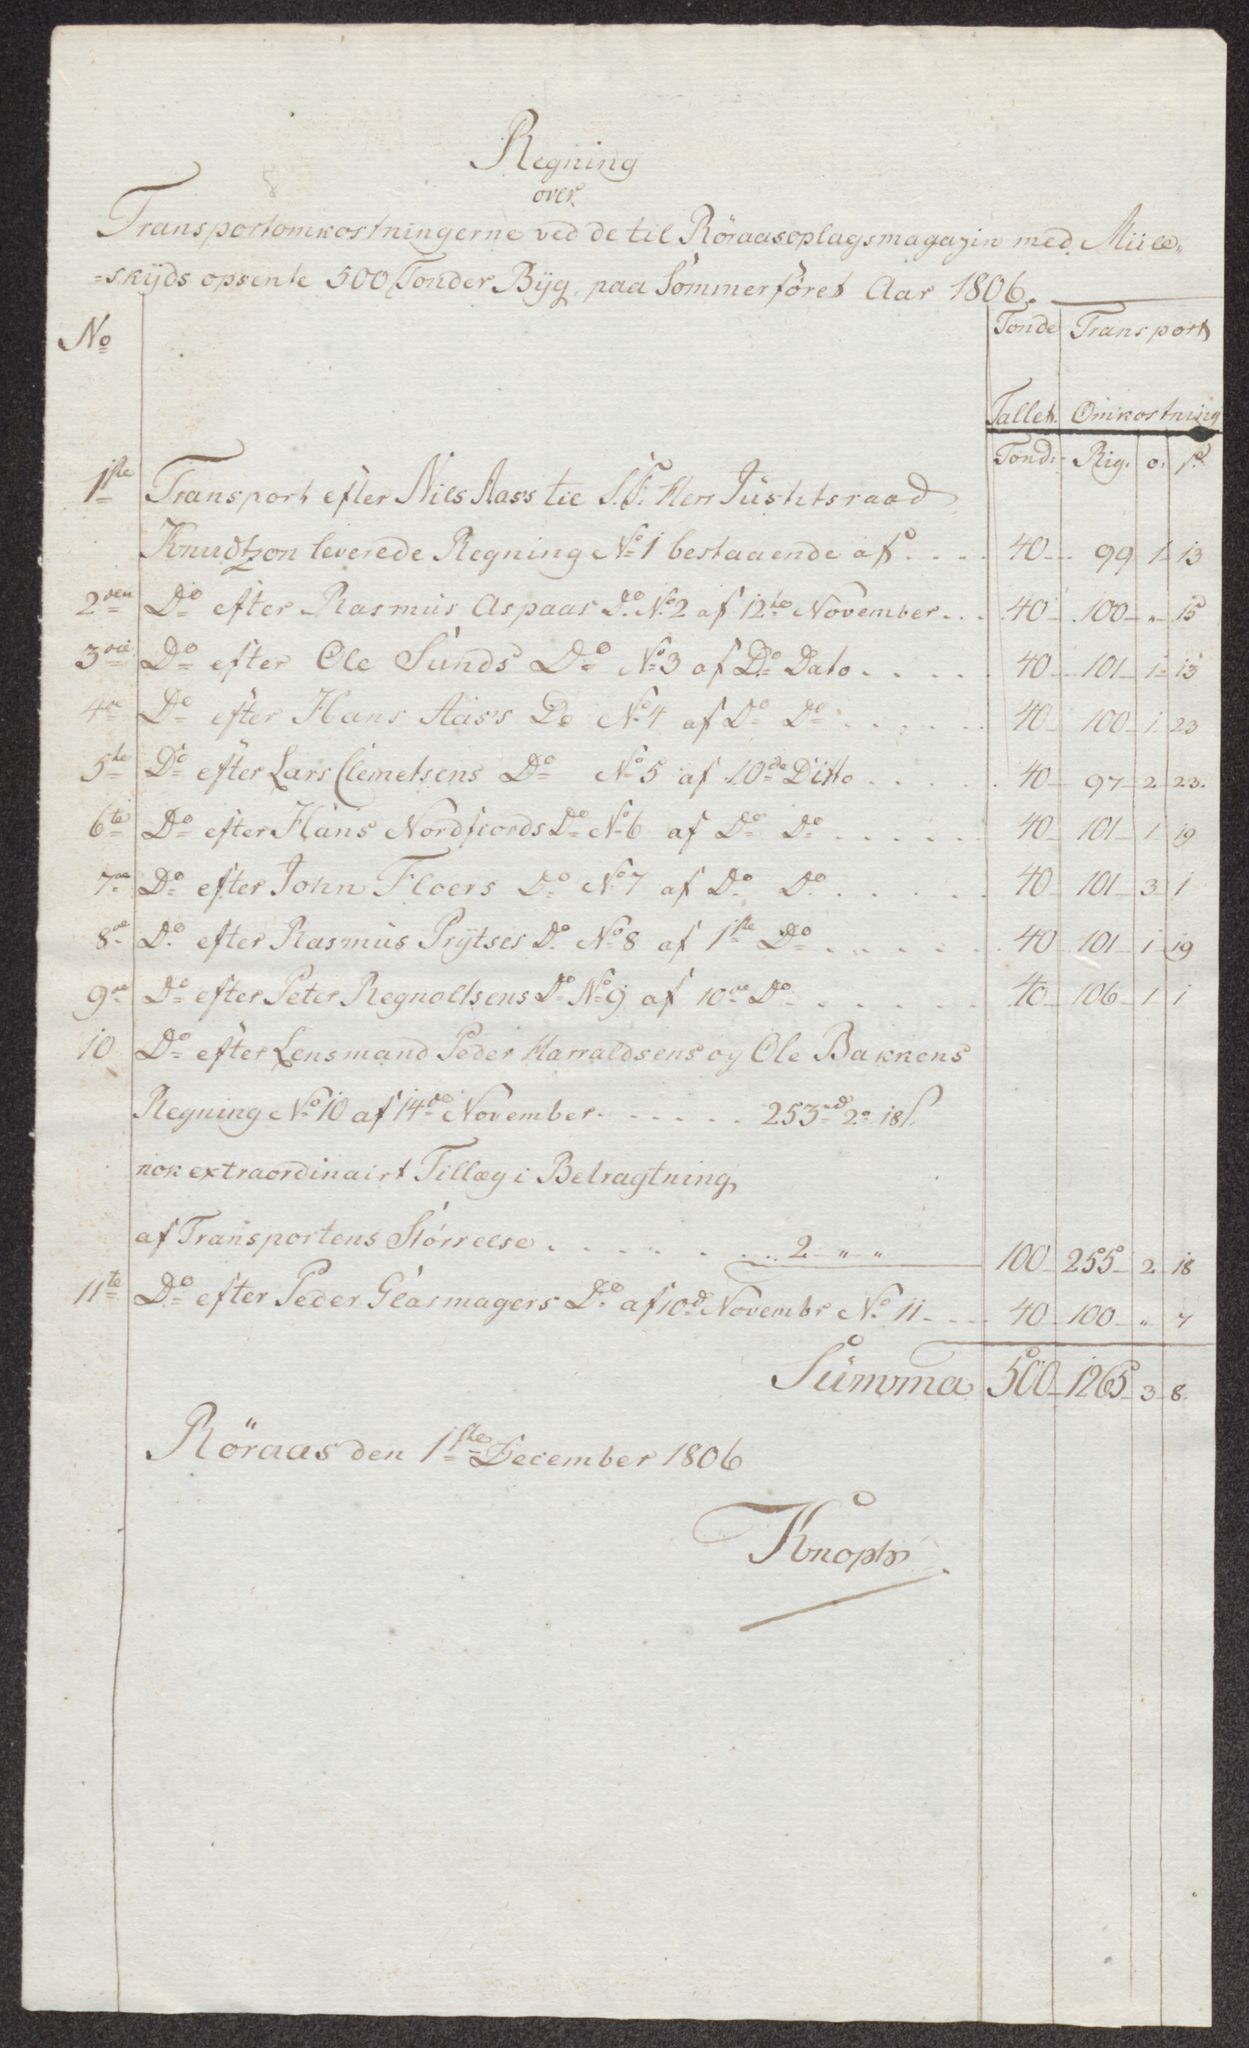 Regning
over
Transportomkostningerne ved de til Röraasoplagsmagazin med Müle„
=skÿds opsente 500 Tonder Bÿg, paa Sommerföret Aar 1806.
No Tonde Transport
Tallet. Omkostning
Tond. Rig. o. s.
1ste Transport efter Niels Aass til S. T. Herr Justitsraad
Knudtzon leverede Regning No 1 bestaaende af . . . . 40 99 1 13
2den Do efter Rasmus Aspaas Do No 2 af 12te November . . . 40 100 „ 15
3die Do efter Ole Sunds Do No 3 af Do Dato . . . . . 40 101 1 13
4de Do efter Hans Aass Do No 4 af Do Do . . . . . . 40 100 1 23
5te Do efter Lars Clemetsens Do No 5 af 10de Ditto . . . . . 40 97 2 23.
6te Do efter Hans Nordfiords Do No 6 af Do Do . . . . . . 40 101 1 19
7de Do efter John Floers Do No 7 af Do Do . . . . . 40 101 3 1
8de Do efter Rasmus Prÿtses Do No 8 af 1ste Do . . . . . . 40 101 1 19
9de Do efter Peter Regnoltsens Do No 9 af 10de Do . . . . . . 40 106 1 1
10 Do efter Lensmand Peder Harraldsens og Ole Bakkens
Regning No 10 af 14de November . . . . . . 253rd 2o 18s.
nok extraordinairt Tillæg i Betragtning
af Transportens Störrelse . . . . . . . 2 „ „ 100 255 2 18
11te Do efter Peder Glasmagers Do af 10d Novembr No 11 . . . 40 100 „ 7
Summa 500 1265 3 8.
Röraas den 1ste December 1806
Knoph